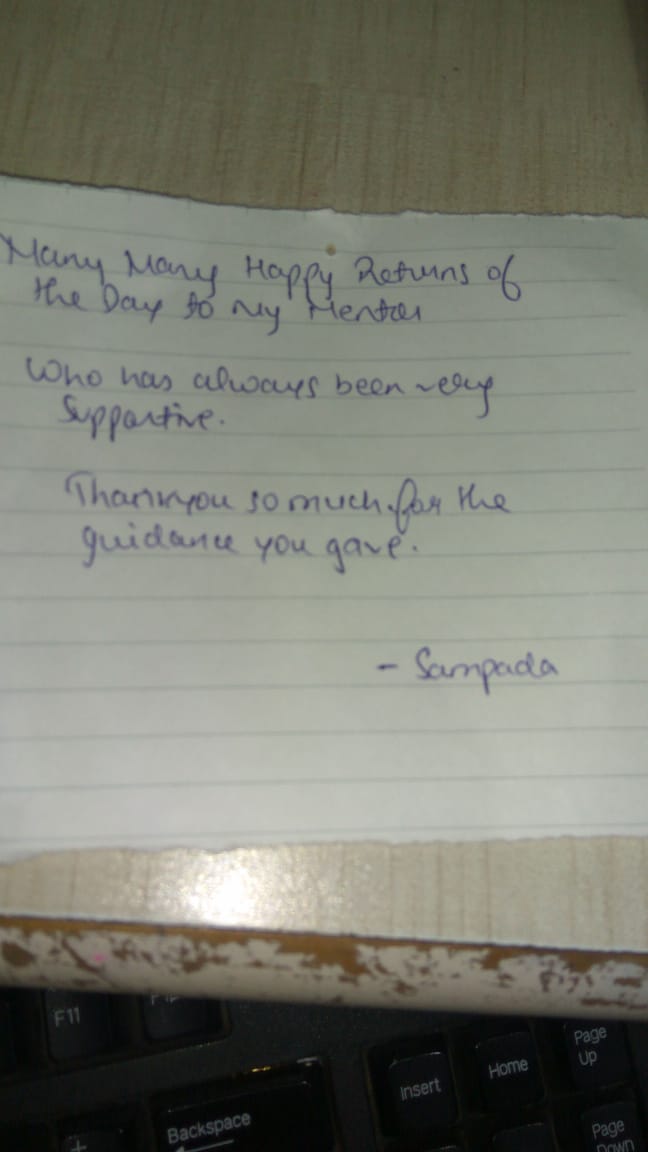 Many Many Happy Returns of
the Day to my Mentor
Who has always been very
Supportive.
Thankyou so much for the
guidance you gave.
- Sampada
F11
F12
Insert
Home
Page
Up
Backspace
+
Page
Down